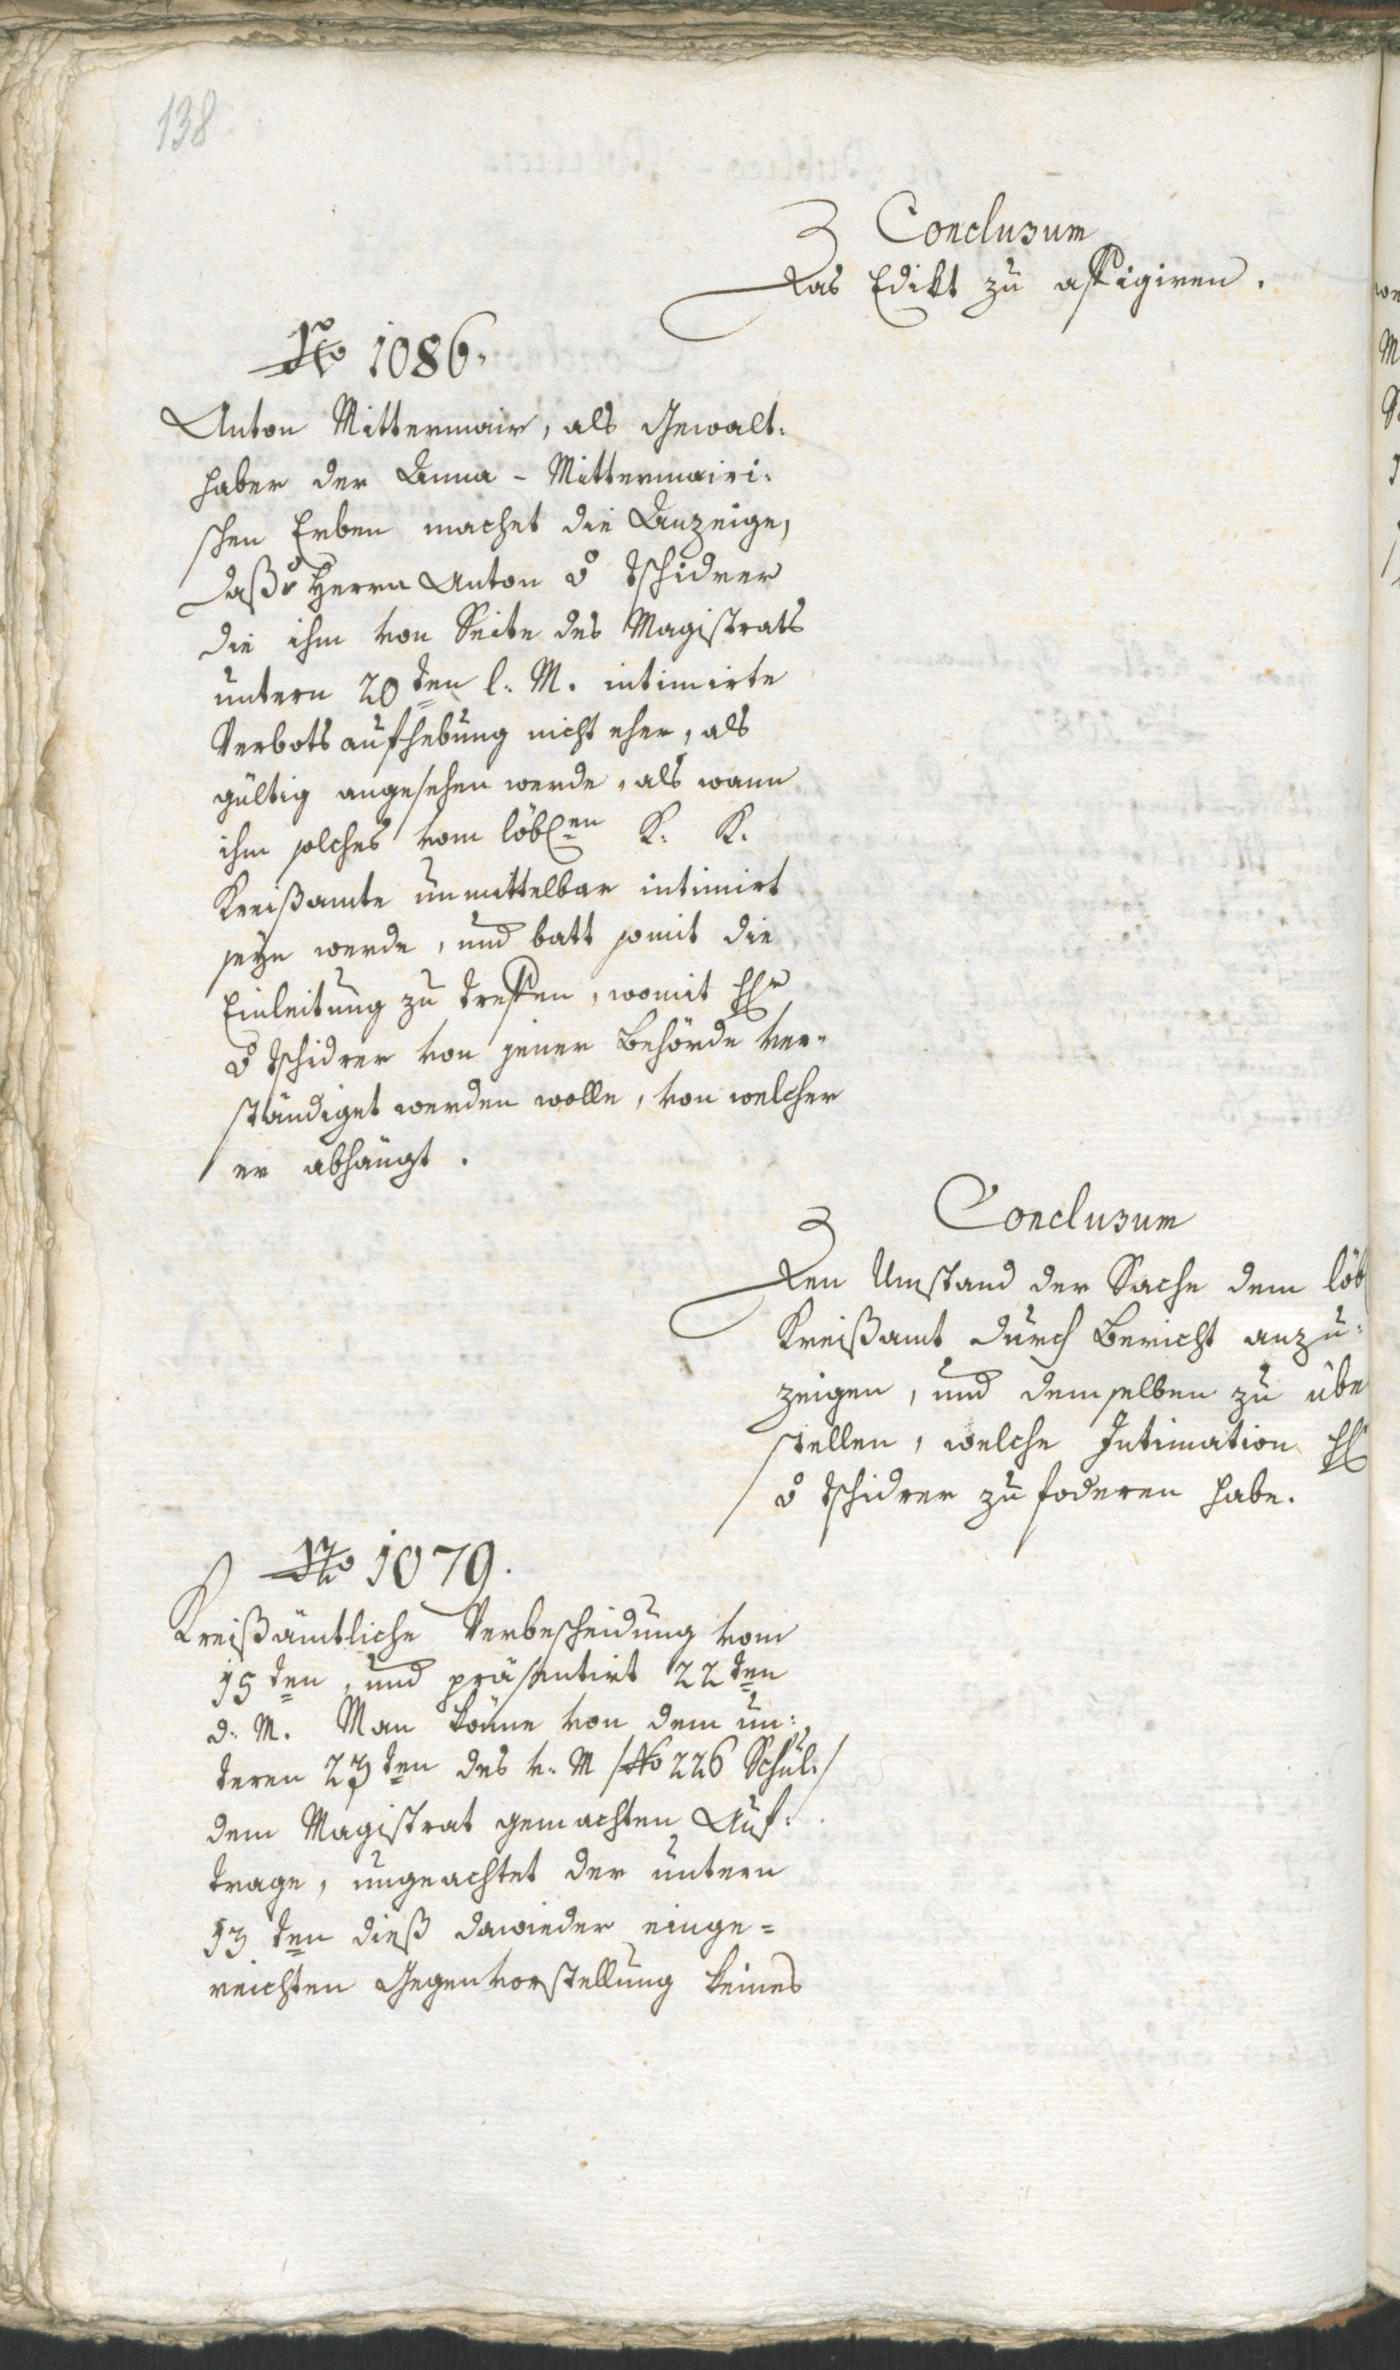 138
Conclusum
Das Edikt zu affigiren.
No 1086.
Anton Mittermair, als Gewalt:
haber der Anna - Mittermairi:
schen Erben machet die Anzeige,
daß Herrn Anton v Tschidrer
die ihm von Seite des Magistrats
untern 20ten l: M. intimirte
Verbots aufhebung nicht eher, als
gültig angesehen werde, als wann
ihm solches vom löblen K: K:
Kreißamte unmittelbar intimirt
seyn werde, und batt somit die
Einleitung zu treffen, womit Hr
v Tschidrer von jener Behörde ver-
ständiget werden wolle, von welcher
er abhängt.
Conclusum
Den Umstand der Sache dem löb
Kreißamt durch Bericht anzu:
zeigen, und demselben zu übe
stellen, welche Intimation H
v Tschidrer zu foderen habe.
No 1079.
Kreißämtliche Verbescheidung vom
15ten, und präsentirt 22ten
d: M. Man könne von dem un:
teren 23ten des v: M /No 226 Schul:/
dem Magistrat gemachten Auf:
trage, ungeachtet der untern
13ten dieß dawieder einge=
reichten Gegenvorstellung keines